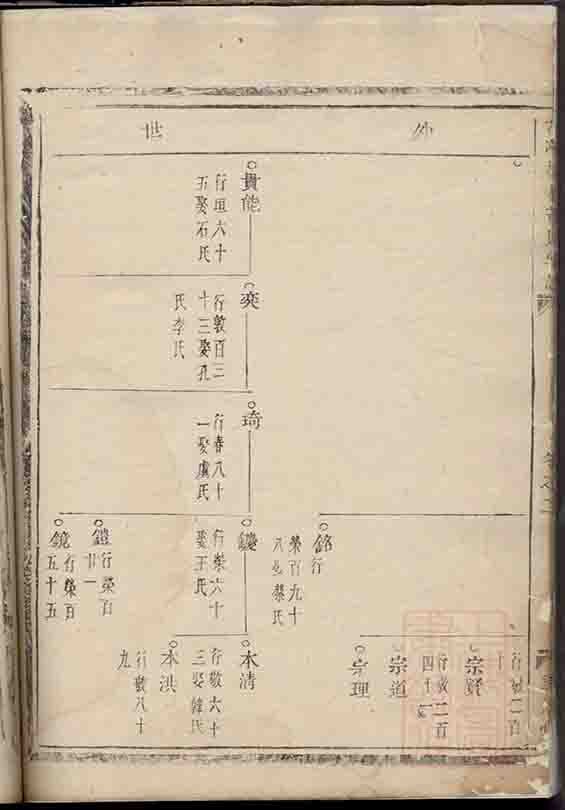 外
世
行敬二百
宗賢
行敬二百
四十
宗道
宗理
銘
行
榮百九十
八娶蔡氏
貫能
行垣六十
五娶石氏
奕
行敦百三
十三娶孔
氏李氏
琦
行春八十
一娶虞氏
行榮六十
娶王氏
鎧
行榮百
廿一
鏡
行榮百
五十五
本清
行敬六十
三娶韓氏
本洪
行敬八十
九